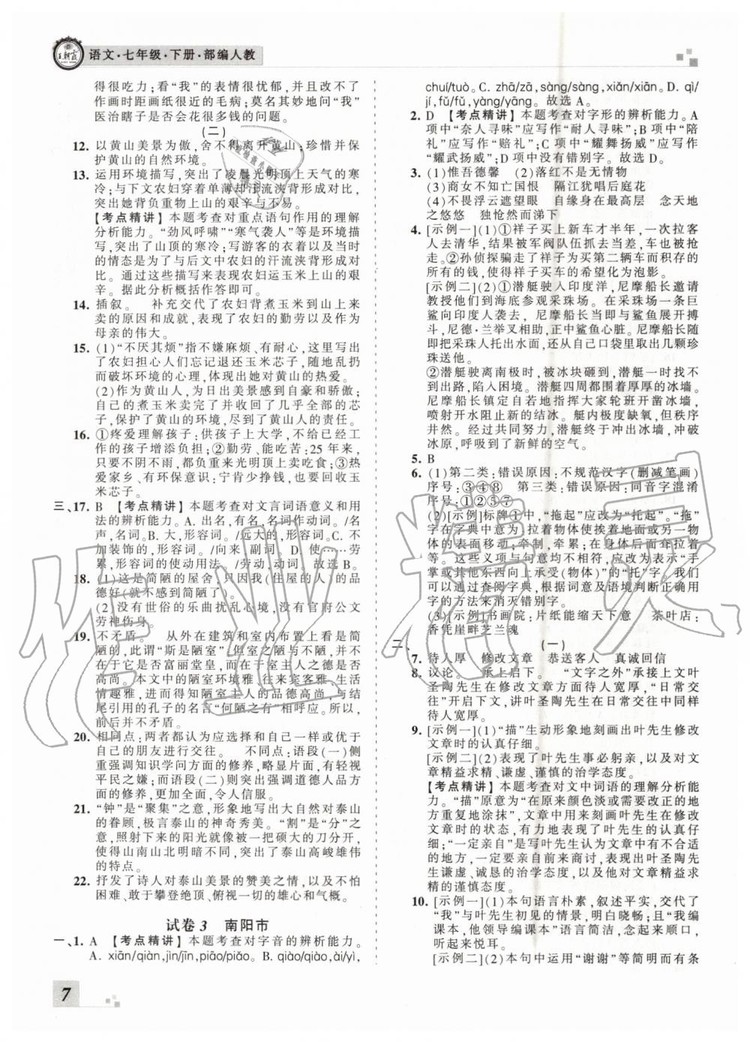 王朝霞
语文·七年级·下册·部编人教
得很吃力;看“我”的表情很忧郁,并且在
作画时距画纸很近的老毛病;莫名其妙地问“我”
医治瞎子是否会花很多钱的问题。
(二)
12. 以黄山美景为傲,舍不得离开黄山;珍惜并保
护黄山的自然环境。
13. 运用环境描写,突出了凌晨光明顶上天气的寒
冷;与下文农妇穿着单薄却汗流浃背形成对比,
突出她背负重物上山的艰辛与不易。
【考点精讲】本题考查对重点语句作用的理解
分析能力。“劲风呼啸”“寒气袭人”等是环境描
写,突出了山顶的寒冷;写游客的衣着以及当时
的情态是为了与后文中农妇的汗流浃背形成对
比。通过这些描写来表现农妇运玉米上山的艰
辛。据此分析概括作答即可。
14. 插叙。 补充交代了农妇背煮玉米到山上来
卖的原因和成就,表现了农妇的勤劳以及作为
母亲的伟大。
15. (1)“不厌其烦”指不嫌麻烦、有耐心,这里写出
了农妇担心人们忘记退还玉米芯子,随地乱扔
而破坏环境的心情,体现出她对黄山的热爱。
(2)作为黄山人,为日出美景感到自豪和骄傲;
自己的煮玉米卖完了并收回了几乎全部的芯
子,保护了黄山的环境,尽到了黄山人的责任。
16. ①疼爱理解孩子:供孩子上大学,不给已经工
作的孩子增添负担;②勤劳、能吃苦:25 年来,
只要不下雨,都背重物来光明顶上卖吃食;③热
爱家乡、有环保意识:宁肯少挣钱,也要收回玉
米芯子。
三、17. B 【考点精讲】本题考查对文言词语意义和用
法的辨析能力。A. 出名,有名,名词作动词。/名
声,名词。B. 大,形容词。/远大的,形容词。C. 不
加装饰的,形容词。/向来,副词。D. 使……劳
累,形容词的使动用法。/劳动,动词。故选 B。
18. (1)这是简陋的屋舍,只因我(住屋的人)的品
德好(就不感到简陋了)。
(2)没有世俗的乐曲扰乱心境,没有官府公文
劳神伤身。
19. 不矛盾。 从外在建筑和室内布置来看是简
陋的,此谓“斯是陋室”,但刘禹锡认为,陋与不
陋并不在于是否富丽堂皇,而在于室主人之德是否
高尚。本文中的陋室环境雅,往来宾客雅,生活
情趣雅,进而印证了陋室主人的品德高尚,与结
尾引用的孔子的名言“何陋之有”相呼应。所以,
前后并不矛盾。
20. 相同点:两者都认为应选择和自己一样或优于
自己的朋友进行交往。 不同点:语段(一)侧
重强调知识学问方面的修养,略显片面,有轻视
平民之嫌;而语段(二)则突出强调道德人品方
面的修养,更加全面、令人信服。
21. “钟”是“聚集”之意,形象地写出大自然对泰山
的眷顾,极言泰山的神奇秀美。“割”是“分”之
意,照射下来的阳光就像被一把硕大的刀分开,
使得山南山北明暗不同,突出了泰山高峻雄伟
的特点。
22. 抒发了诗人对泰山美景的赞美之情,以及不怕
困难、敢于攀登绝顶、俯视一切的雄心和气概。
试卷 3 南阳市
一、1. A 【考点精讲】本题考查对字音的辨析能力。
A. xiān/qiàn,jìn/jīn,piāo/piáo。B. kǎi,āi/yì,
chuí/tuò。C. zhá/zā,sàng/sāng,xiǎn/xiān。D. qì/
jí,fǔ/fú,yàng/yāng。故选 A。
2. D 【考点精讲】本题考查对字形的辨析能力。A
项中“奈人寻味”应写作“耐人寻味”,B 项中“陪
礼”应写作“赔礼”;C 项中“耀舞扬威”应写作
“耀武扬威”;D 项中没有错别字。故选 D。
3. (1)惟吾德馨 (2)落红不是无情物
(3)商女不知亡国恨 隔江犹唱后庭花
(4)不畏浮云遮望眼 自缘身在最高层 念天地
之悠悠 独怆然而涕下
4. [示例一](1)①祥子买上新车才半年,一次拉客
人去清华,结果被军阀队伍抓去当差,车也被抢
走。②孙侦探骗走了祥子为买第二辆车而积存的
所有的钱,使得祥子买车的希望化为泡影。
[示例二](2)①潜艇驶入印度洋,尼摩船长邀请
教授他们到海底参观采珠场。在采珠场一条巨
鲨向印度采珠人扑来,尼摩船长手拿短刀与鲨鱼
搏斗,尼德·兰举叉相助,正中鲨鱼心脏。尼摩船长随即
把采珠人托出水面,还从自己口袋里取出几颗珍
珠送给他。
②潜艇驶离南极时,被冰块砸到,潜艇一时找不
到出路,陷入困境。潜艇四周都围着厚厚的冰墙。
尼摩船长镇定自若地指挥大家轮班开凿冰墙,
喷射开水阻止新的结冰。艇内极度缺氧,但秩序
井然。经过大家共同努力,潜艇终于冲出冰墙,冲破
冰床,呼吸到了新鲜的空气。
5. B
6. (1)第二类:错误原因:不规范汉字(删减笔画)
序号:③④⑧ 第三类:错误原因:同音字混淆
序号:①②⑤⑦
(2)[示例]标牌①中,“拖起”应改为“托起”。“拖”
字在字典中意为:拉着物体使挨着地面或另一物
体的表面移动;牵引,牵制;在身体后面牵拉着
等。这些义项均与语句意思不符,应改为表示“手
掌或其他东西向上承受(物体)”的“托”字。我
们可以通过查阅字典,根据词意及语境判断正确用
字的方法来消灭错别字。
(3)[示例]书画院:片纸能缩天下意 茶叶店:
香凭崖畔芝兰魂
二、 (一)
7. 待人厚 修改文章 恭送客人 真诚回信
8. 议论。 承上启下。 “文字之外”承接上文叶
圣陶先生在修改文章方面待人宽厚,“日常交
往”开启下文,讲叶圣陶先生在日常交往中同样
待人宽厚。
9. [示例一](1)“描”生动形象地刻画出叶先生修改
文章时的认真仔细。
[示例二](2)表现了叶先生事必躬亲,以及对文
章精益求精、谦虚、谨慎的治学态度。
【考点精讲】本题考查对文中词语的理解分析能
力。“描”原意为“在原来颜色淡或需要改正的地
方重复地涂抹”,在文中用来刻画叶先生在修改
文章时的状态,有力地表现了叶先生的认真仔
细;“一定……一定……”是写只要文章中有不合适
的地方,一定要来问问我是否可以,表现出叶圣陶先
生谦虚、诚恳的做人态度,以及他对文章精益求
精的谨慎态度。
10. [示例一](1)本句语言朴素,叙述平实,交代了
“我”与叶先生初见的情景,明白晓畅;且“我编
课本,他领导编课本”语言简洁,念来顺口,
听起来悦耳。
[示例二](2)本句中运用“谢谢”等简短的口头
7